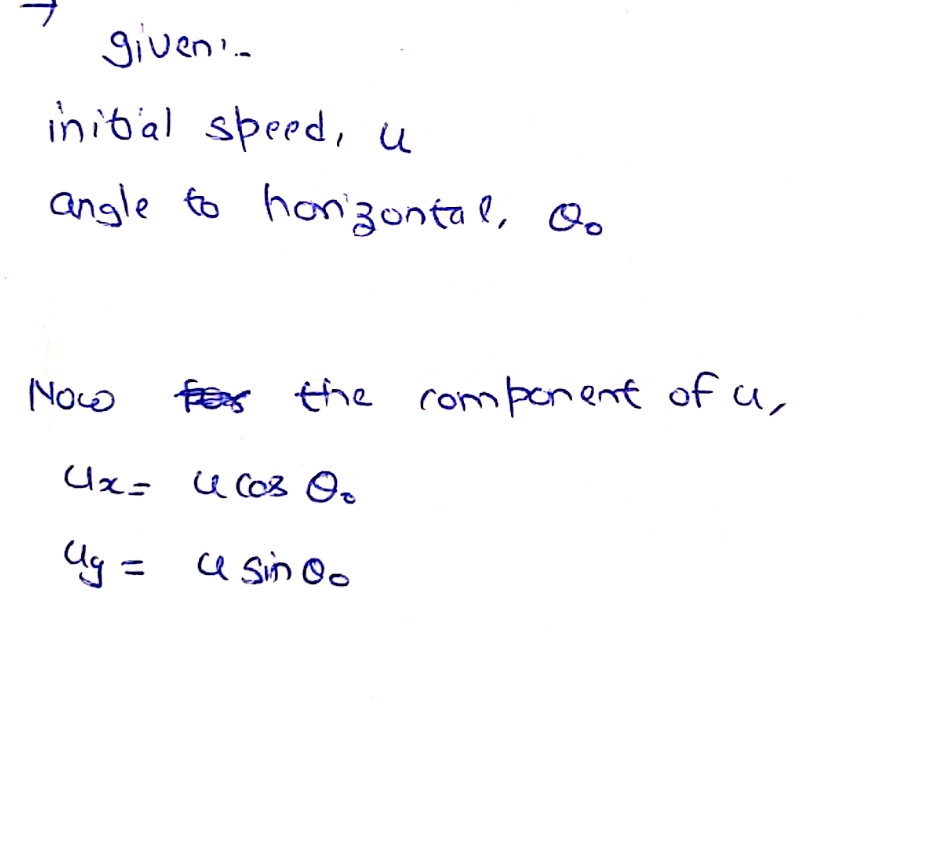 →
given:-
initial speed, u
angle to horizontal, θ₀
Now the component of u,
uₓ = u cos θ₀
u_y = u sin θ₀